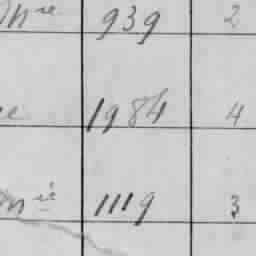 Mre 939 2
e 1984 4
mie 1119 3